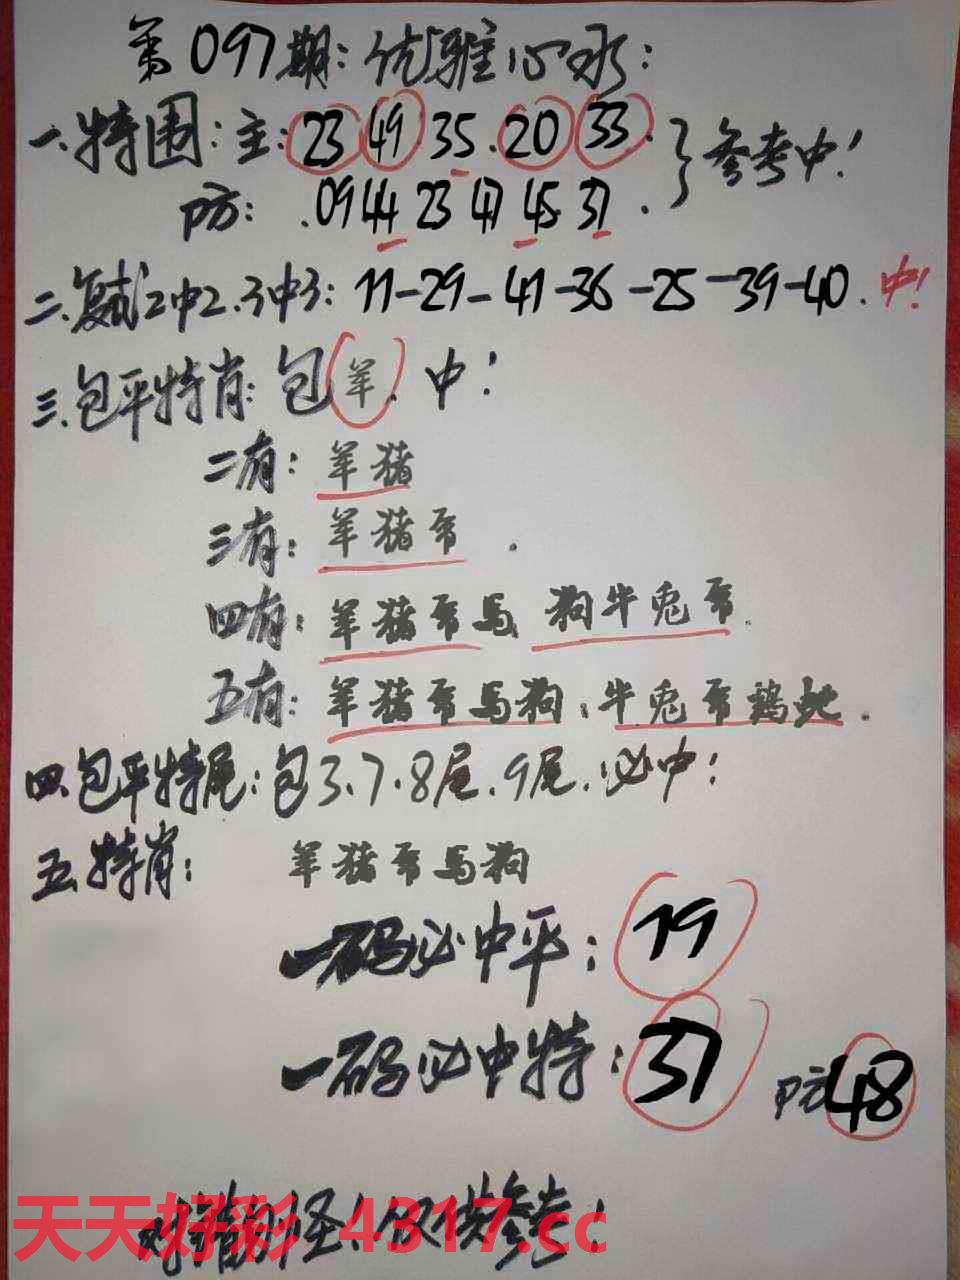 第097期:优雅心水:
一、特围:主:23 49 35.20 33.
防: .09 44 23 47 45 37. } 参考中!
二、复试2中2.3中3: 11-29-41-36-25-39-40. 中!
三.包平特肖:包羊.中!
二有:羊猪
三有:羊猪.
四有:羊猪 马 狗牛兔.
五有:羊猪 马狗:牛兔 鸡蛇.
四.包平特尾:包3.7.8尾.9尾.必中!
五.特肖: 羊猪 马狗
一码必中平: 19
一码必中特: 37 防48
对错勿怪!仅供参考!
天天好彩 4317.cc